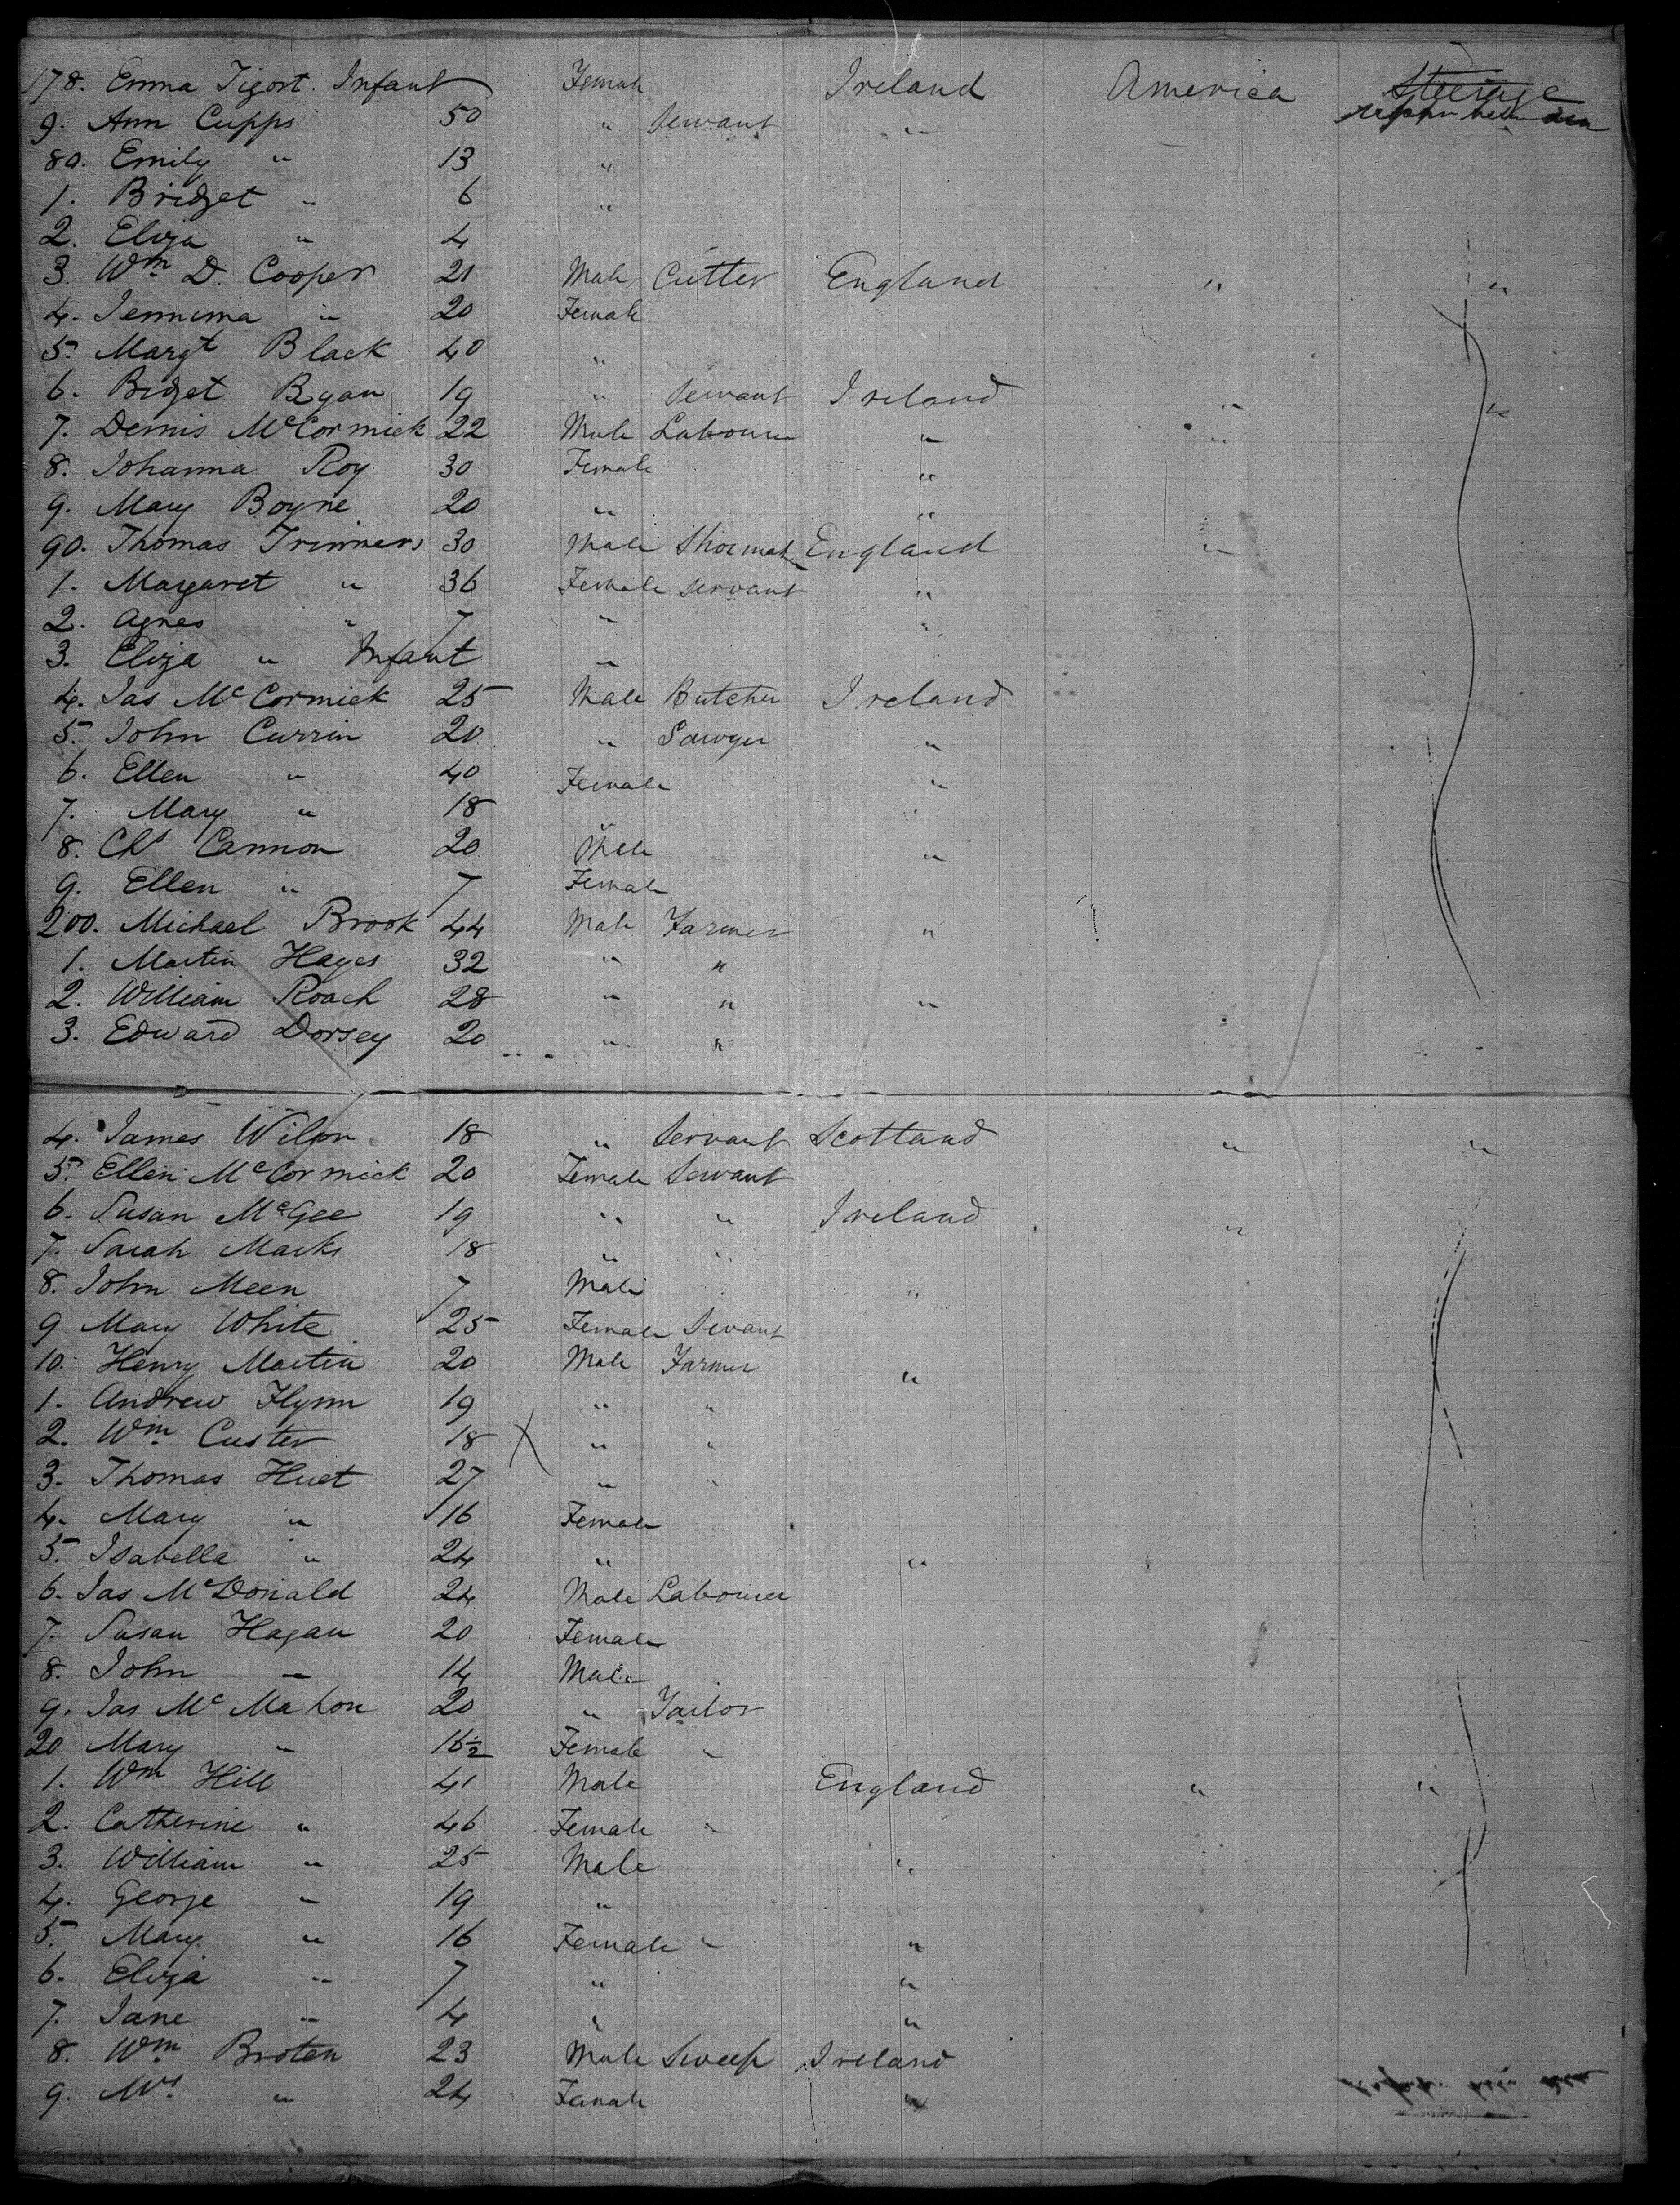 178. Emma Tigort. Infant Female Ireland America Steerage
9. Ann Cupps 50 " Servant "
80. Emily " 13 "
1. Bridget " 6 "
2. Eliza " 4
3. Wm D. Cooper 21 Male Cutter England " "
4. Jemmima " 20 Female
5. Margt Black 40 "
6. Bridget Ryan 19 " Servant Ireland " "
7. Dennis McCormick 22 Male Labourer " "
8. Johanna Roy 30 Female "
9. Mary Boyne 20 " "
90. Thomas Trinners 30 Male Shoemak England "
1. Margaret " 36 Female Servant "
2. Agnes " 7 " "
3. Eliza " Infant "
4. Jas McCormick 25 Male Butcher Ireland
5. John Currin 20 " Sawyer "
6. Ellen " 40 Female "
7. Mary " 18 "
8. Chs Cannon 20 Male "
9. Ellen " 7 Female
200. Michael Brook 44 Male Farmer "
1. Martin Hayes 32 " "
2. William Roach 28 " " "
3. Edward Dorsey 20 " "
4. James Wilson 18 " Servant Scotland " "
5. Ellen McCormick 20 Female Servant
6. Susan McGee 19 " " Ireland "
7. Sarah Marks 18 " "
8. John Meen 7 Male "
9 Mary White 25 Female Servant
10. Henry Martin 20 Male Farmer "
1. Andrew Flynn 19 " "
2. Wm Custer 18 X " "
3. Thomas Huet 27 " "
4. Mary " 16 Female
5. Isabella " 24 " "
6. Jas McDonald 24 Male Labourer
7. Susan Hagan 20 Female
8. John " 14 Male
9. Jas McMahon 20 " Tailor
20 Mary " 16½ Female "
1. Wm Hill 41 Male England " "
2. Catherine " 46 Female "
3. William " 25 Male "
4. George " 19 "
5. Mary " 16 Female " "
6. Eliza " 7 " "
7. Jane " 4 " "
8. Wm Broten 23 Male Sweep Ireland
9. Mrs " 24 Female "